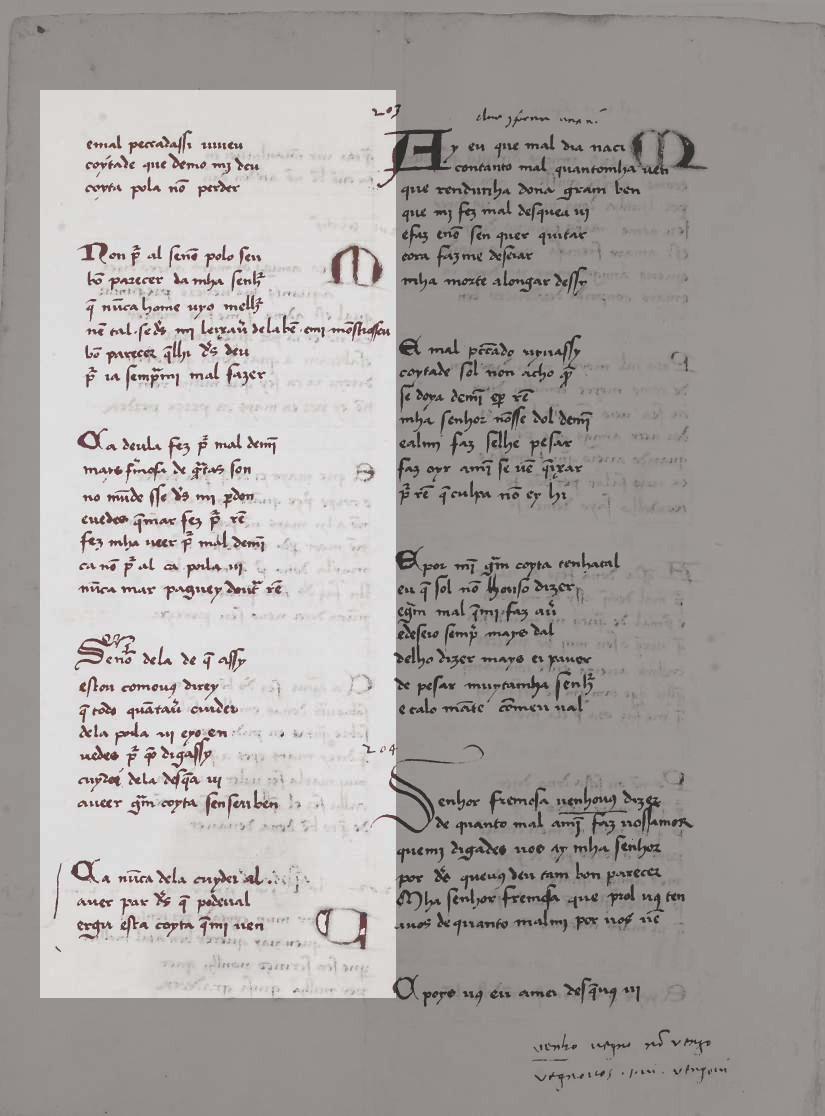 203
emal peccadassi uiueu
coytade que demo mj deu
coyta pola nō perder
Non p̄ al senō polo seu
bō parecer da mha senh̄
q̄ nūca home uyo melh̄
nē tal se d̄s mi leixau̅ dela bē
bō parecer q̄lhi d̄s deu
p̄ ia semp̄mi mal fazer
Ca deula fez p̄ mal demī
mays
no mūde sse d̄s mi p̄don
euedes q̄mar fez p̄ rē
fez mha ueer p̄ mal demī
ca nō p̄ al ca poila ui
nūca mar paguey rē
Senō dela de q̄ assy
estou comouꝯ direy
q̄ todo cuider
dela poila ui eyo en
uedes p̄ q̄ digassy
cuydei dela desq̄a ui
aueer grā coyta senseu ben
Ca nūca dela cuydei al
auer par d̄s q̄ podeual
ergu esta coyta q̄mi uen
Ay eu que mal dia naci
contanto mal quantomha uen
que rendunha dona gram ben
que mj fez mal desquea ui
efaz enō sen quer quitar
eora fazme deseiar
mha morte alongar dessy
E mal pecado uyuassy
coytade sol non acho q̄
se doya demī ep̄ rē
mha senhor nōsse dol demī
ealmi faz selhe pesar
faz oyr amī se uē q̄ixar
p̄ rē q̄ culpa nō ey hi
E por mī grā coyta tenhatal
eu q̄ sol nō houso dizer
egrā mal q̄mi faz au̅
edeseio semp̄ mays dal
delho dizer mays ei pauor
de pesar muytamha senh̄
e calo māte comeu ual
204
Senhor fremosa uenhouꝯ dizer
de quanto mal amī faz uossamor
quemi digades uos ay mha senhor
por d̄s queuꝯ deu tam bon parecer
Mha senhor fremosa que prol uꝯ ten
auos de quanto malmi por uos uē
Capoys uꝯ eu amei desq̄uꝯ ui
uenho uegno nō uengo